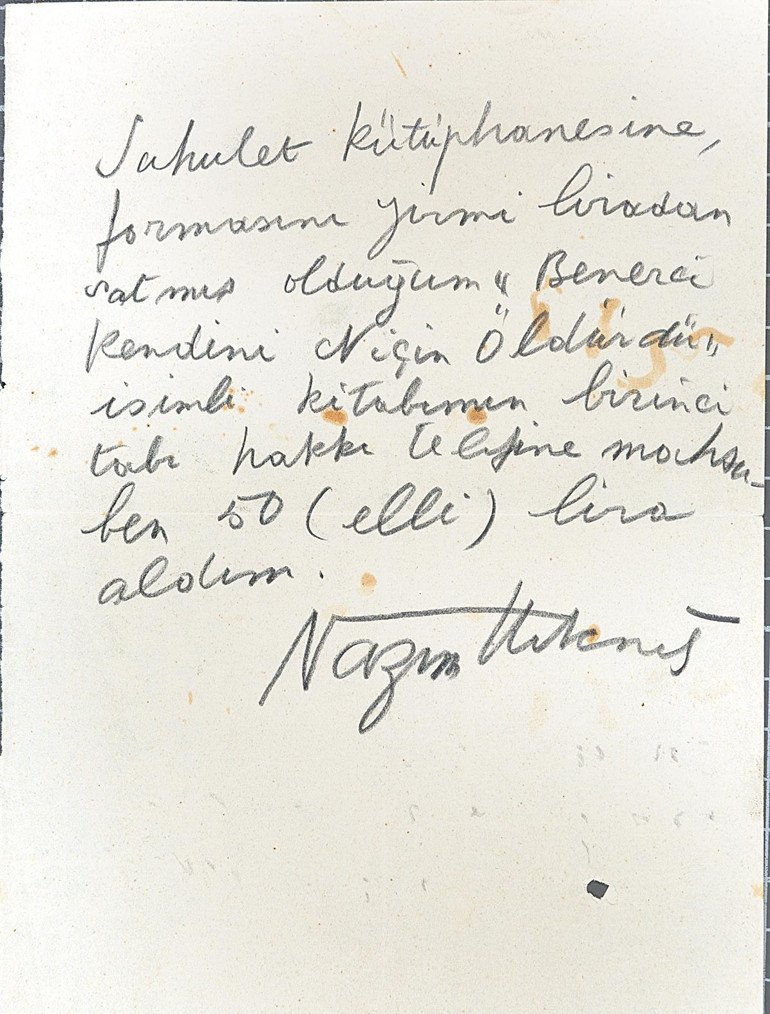 Suhulet kütüphanesine,
formasını yirmi liradan
satmış olduğum „ Benerci
kendini Niçin Öldürdü „
isimli kitabımın birinci
tabı hakkı telifine mahsu-
ben 50 (elli) lira
aldım.
Nazım Hikmet